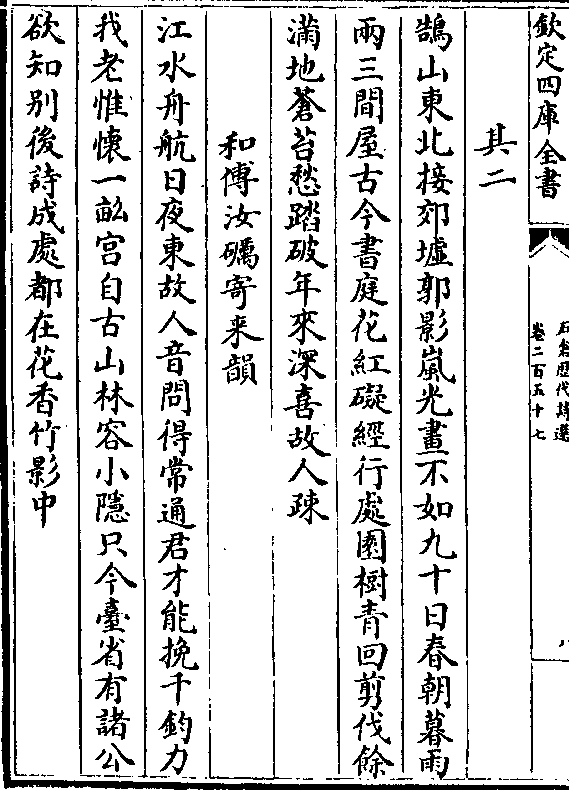 欽定四庫全書
石倉歷代詩選
卷二百五十七
八
其二
鵠山東北接郊墟郭影嵐光畫不如九十日春朝暮雨
兩三間屋古今書庭花紅礙經行處園樹青回剪伐餘
滿地蒼苔愁踏破年來深喜故人疎
和傅汝礪寄来韻
江水舟航日夜東故人音問得常通君才能挽千鈞力
我老惟懷一畝宮自古山林容小隱只今臺省有諸公
欲知别後詩成處都在花香竹影中